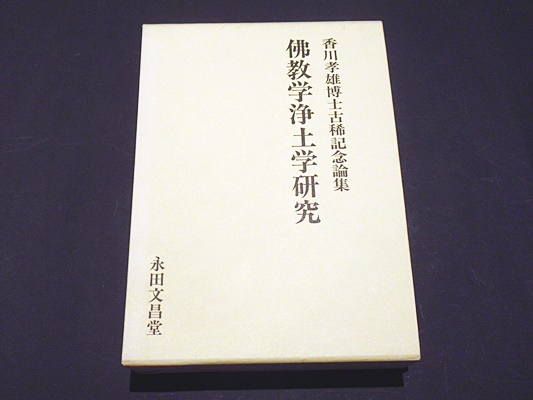 香川孝雄博士古稀記念論集
佛教学浄土学研究
永田文昌堂